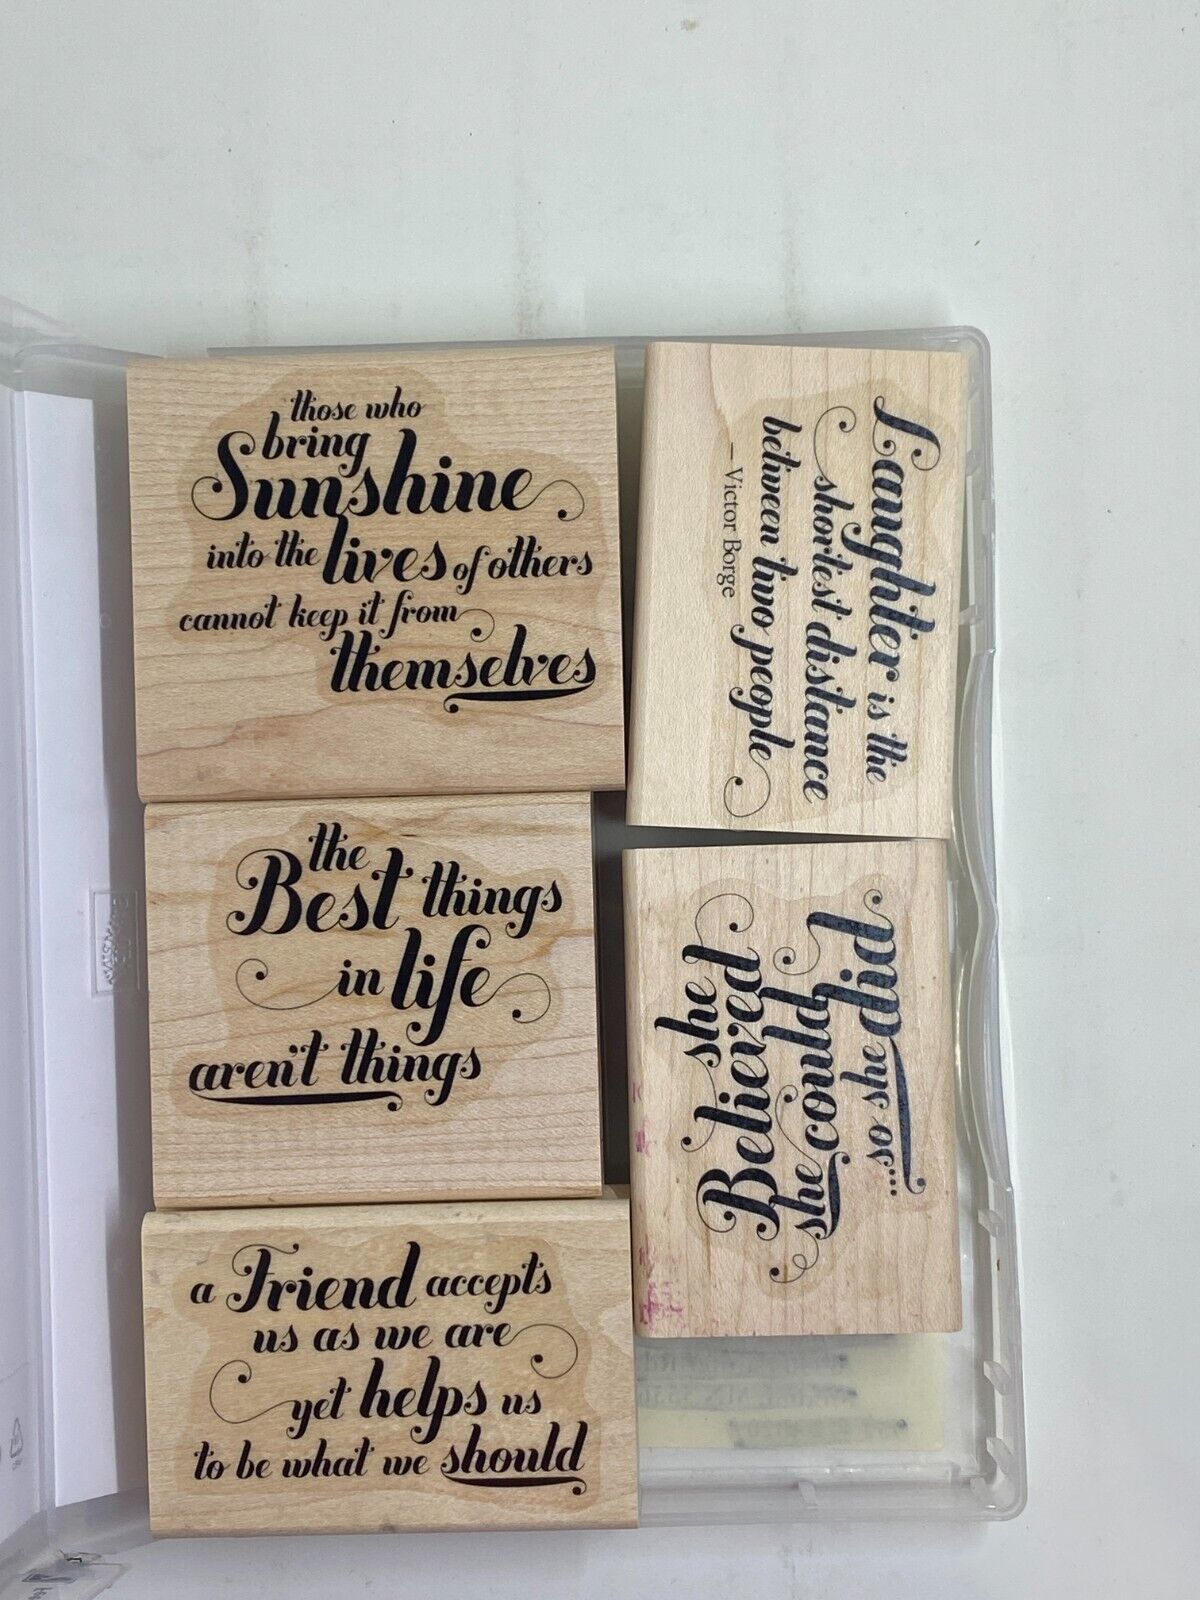 those who
bring
Sunshine
into the lives of others
cannot keep it from
themselves
the
Best things
in life
aren't things
a Friend accepts
us as we are
yet helps us
to be what we should
Laughter is the
shortest distance
between two people
—Victor Borge
she
Believed
she could
...so she did